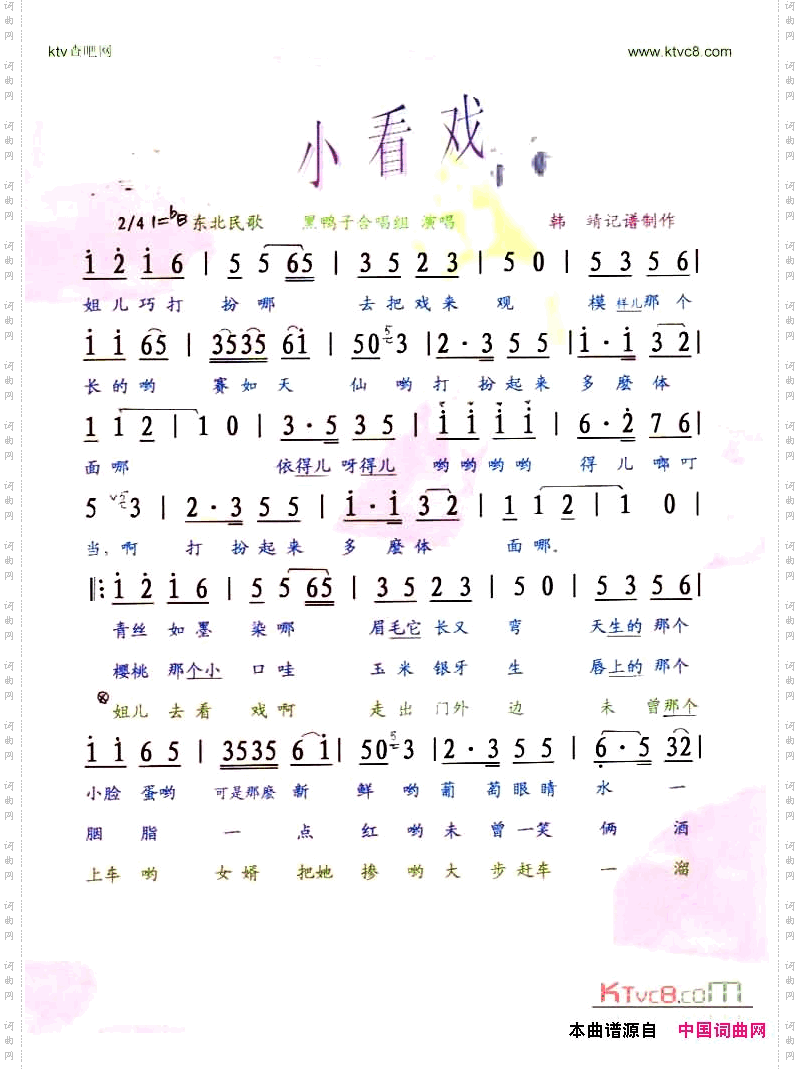 ktv查吧网 www.ktvc8.com
小看戏
2/4 1=bB 东北民歌 黑鸭子合唱组 演唱 韩 靖记谱制作
1 2 1 6 | 5 5 65 | 3 5 2 3 | 5 0 | 5 3 5 6 |
姐儿巧打 扮哪 去把戏来 观 模样儿那个
1 1 65 | 3535 61 | 50 5 3 | 2·3 5 5 | 1·1 3 2 |
长的哟 赛如天 仙哟打扮起来多麽体
1 1 2 | 1 0 | 3·5 3 5 | 1 1 1 1 | 6·2 7 6 |
面哪 依得儿呀得儿 哟哟哟哟 得儿啷叮
5 5 3 | 2·3 5 5 | 1·1 3 2 | 1 1 2 | 1 0 |
当,啊 打扮起来多麽体 面哪.
‖: 1 2 1 6 | 5 5 65 | 3 5 2 3 | 5 0 | 5 3 5 6 |
青丝如墨染哪 眉毛它长又弯 天生的那个
樱桃那个小口哇 玉米银牙生 唇上的那个
⊗ 姐儿去看戏啊 走出门外边 未曾那个
1 1 6 5 | 3535 6 1 | 50 5 3 | 2·3 5 5 | 6·5 32 |
小脸蛋哟 可是那麽新鲜哟葡萄眼睛水一
胭脂一点红哟未曾一笑俩酒
上车哟 女婿把她掺哟大步赶车一溜
KTvc8.com
本曲谱源自 中国词曲网